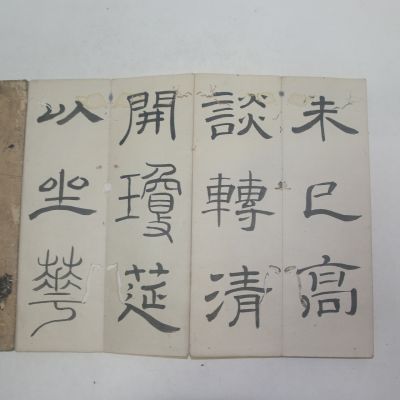 未已高
談轉清
開瓊莚
以坐華